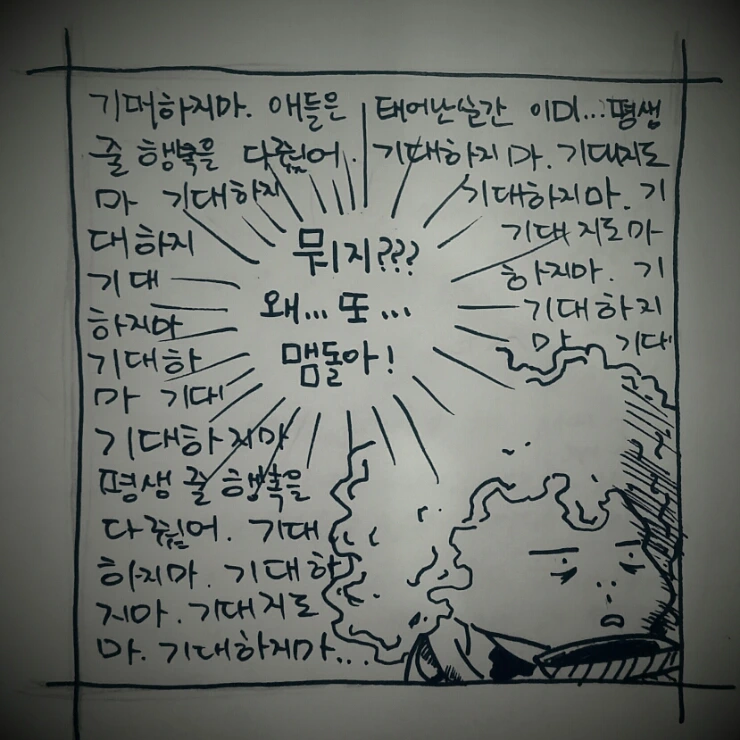 기대하지마. 애들은 태어난 순간 이미... 평생
줄 행복을 다 줬어. 기대하지 마. 기대지도
마 기대하지 기대하지마. 기
대하지 기대 지도마
기대 하지마. 기
하지마 기대하지
기대하 마 기대
마 기대
기대하지마
평생 줄 행복을
다 줬어. 기대
하지마. 기대하
지마. 기대지도
마. 기대하지마...
뭐지???
왜... 또...
맴돌아!